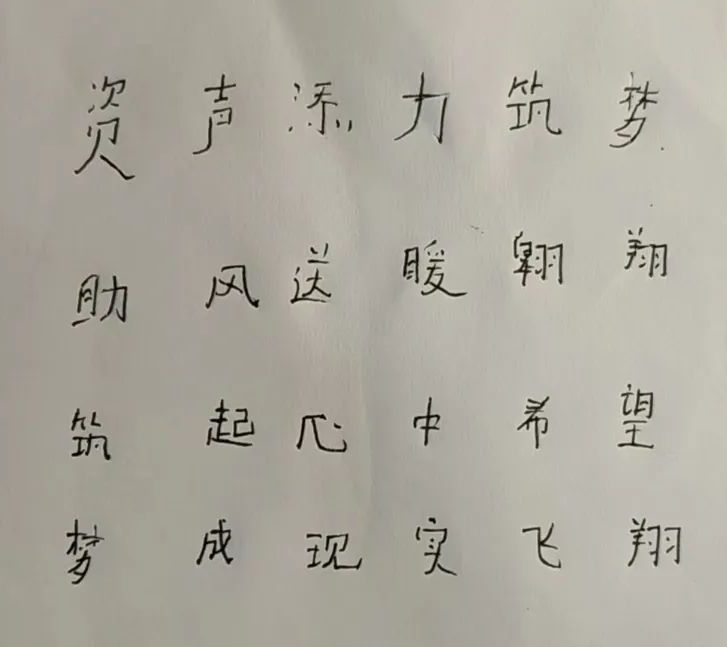 资声添力筑梦
助风送暖翱翔
筑起心中希望
梦成现实飞翔